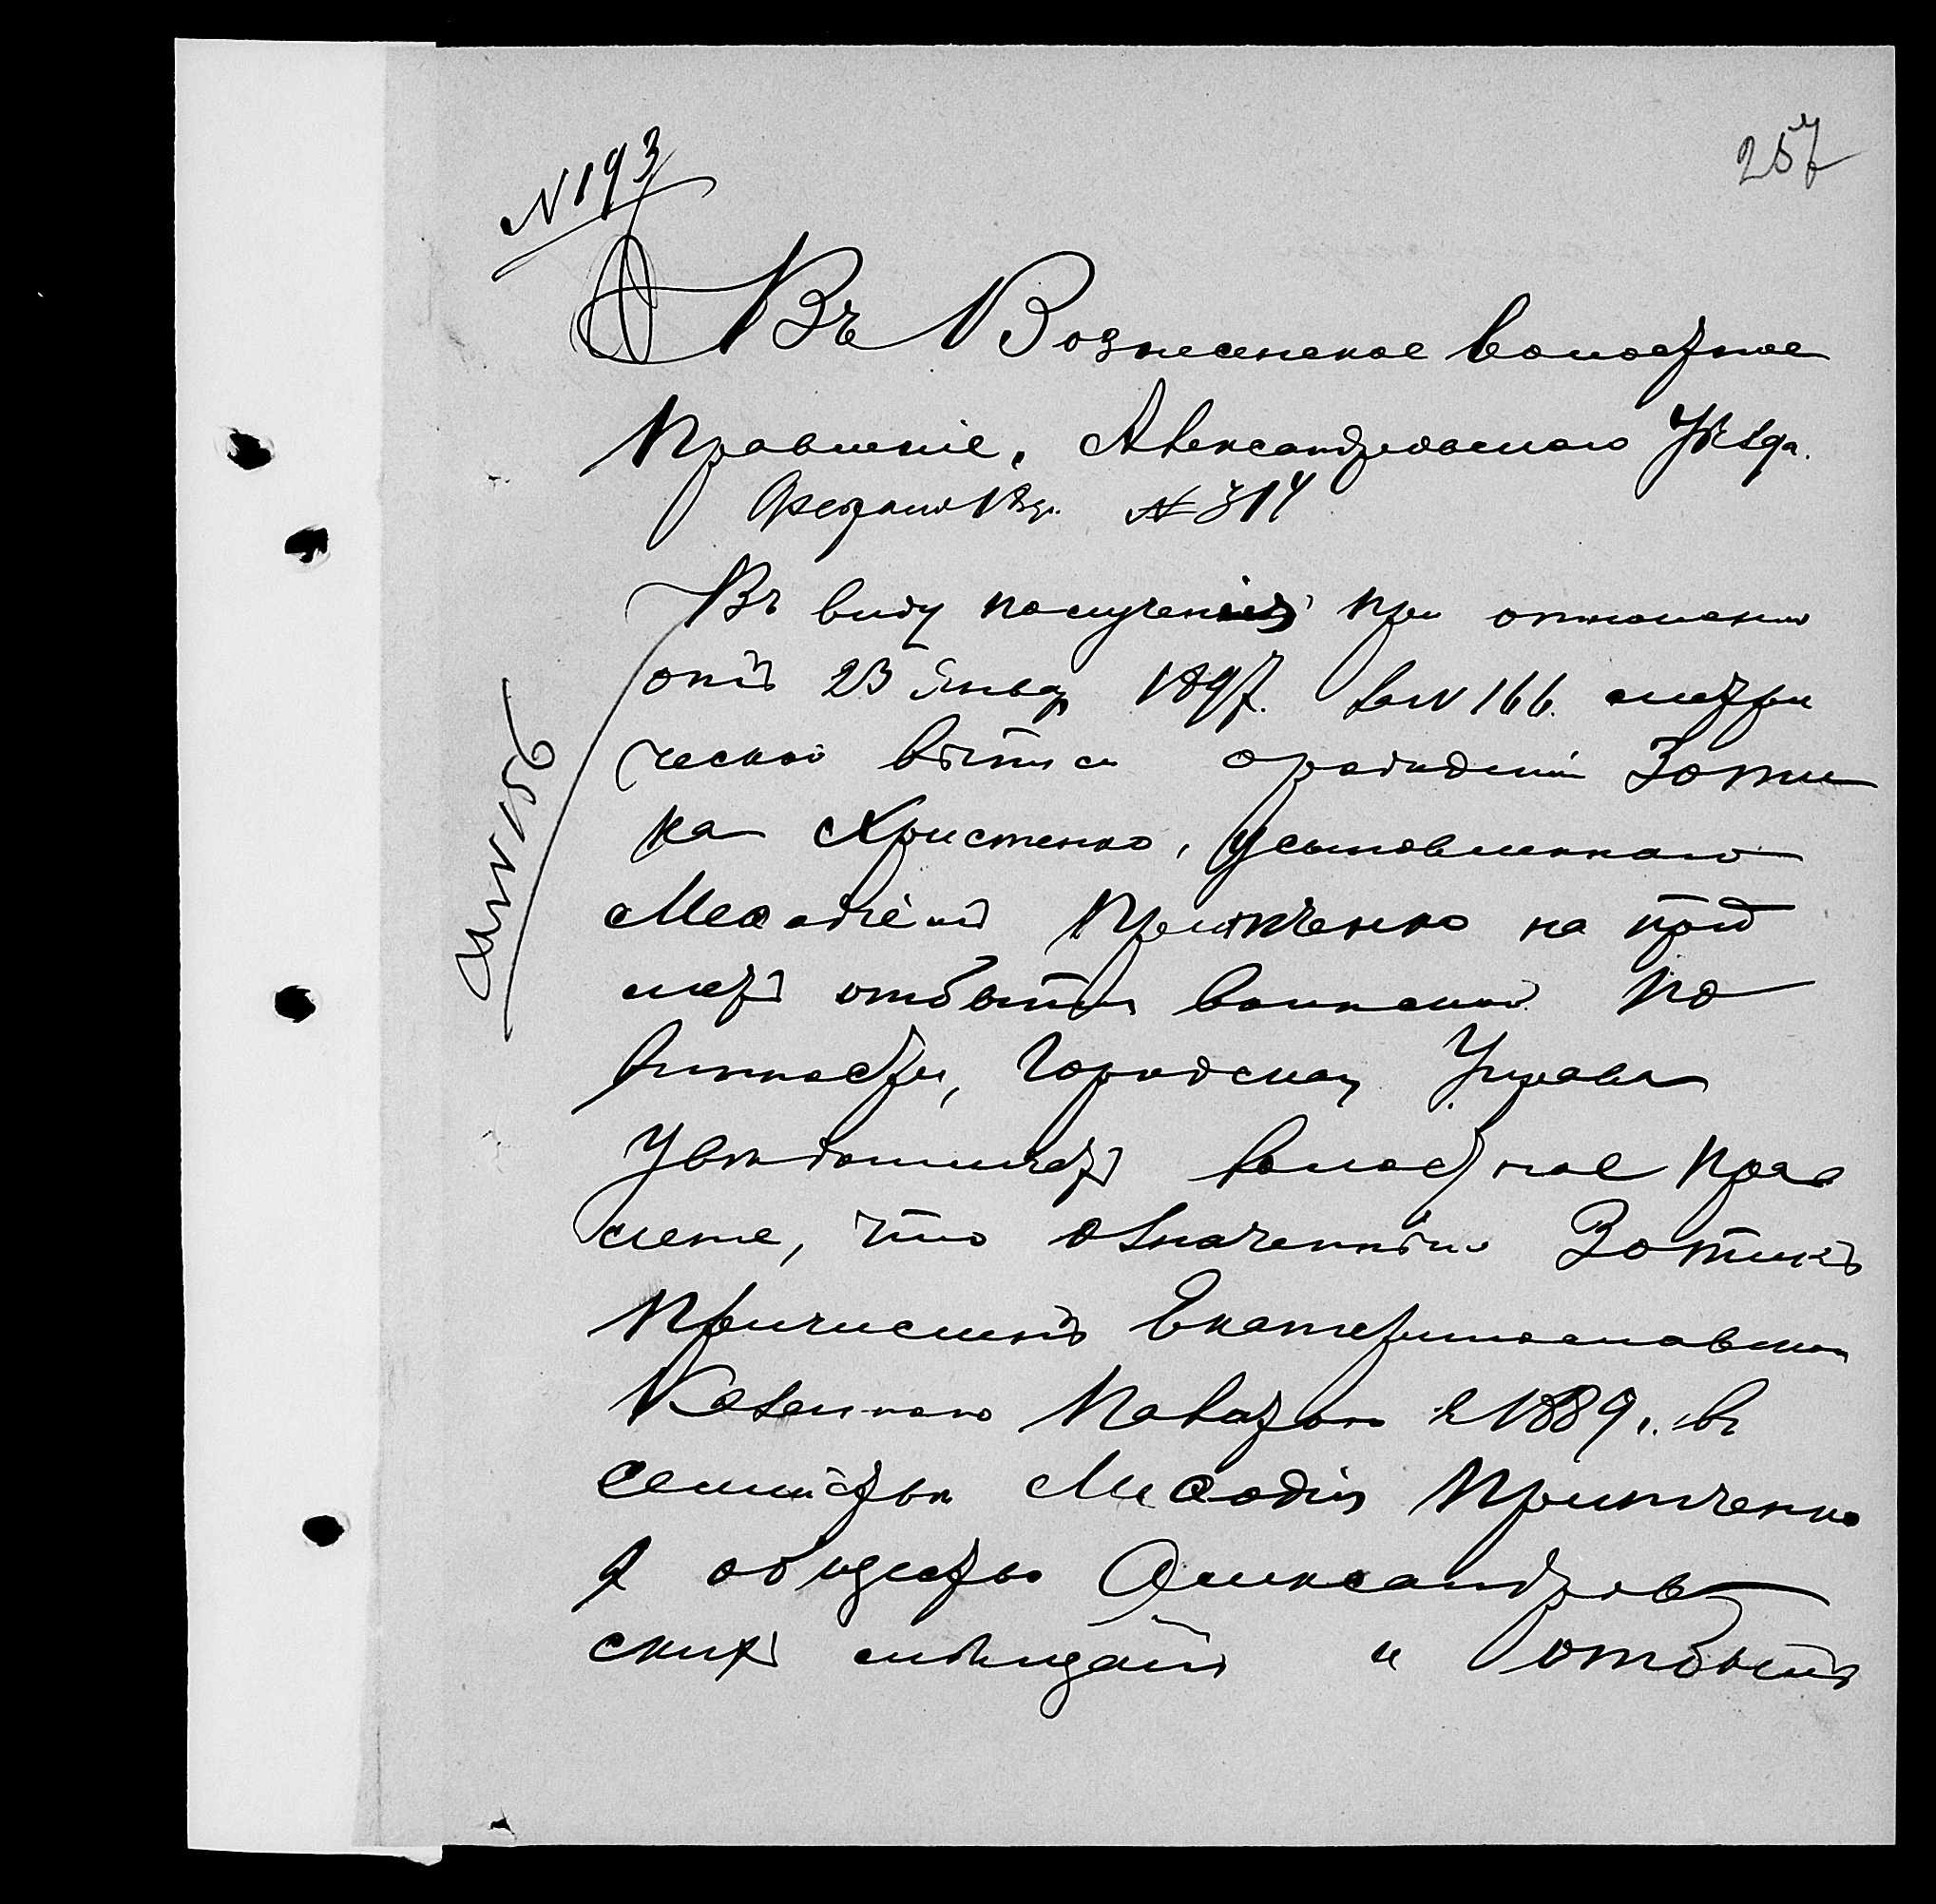 257
N 193
Въ Вознесенское волостное
Правленіе, Александровскаго Уѣзда.
Февраля 18 д. № 314
Въ виду полученія при отношеніи
отъ 23 Январ 1897. за N 166. метри
ческой выписи о рожденіи Зоти
ка Христенко, усыновленнаго
Меѳодіемъ Притченко на пред
метъ отбытія воинской по
винности, Городская Управа
увѣдомляетъ волостное прав
леніе, что означенный Зотикъ
причисленъ Екатеринославскою
Казенною Палатою съ 1889 г. въ
семейство Меѳодія Притченко
въ общество Александров
скихъ мѣщанъ и отбытіе
N 156